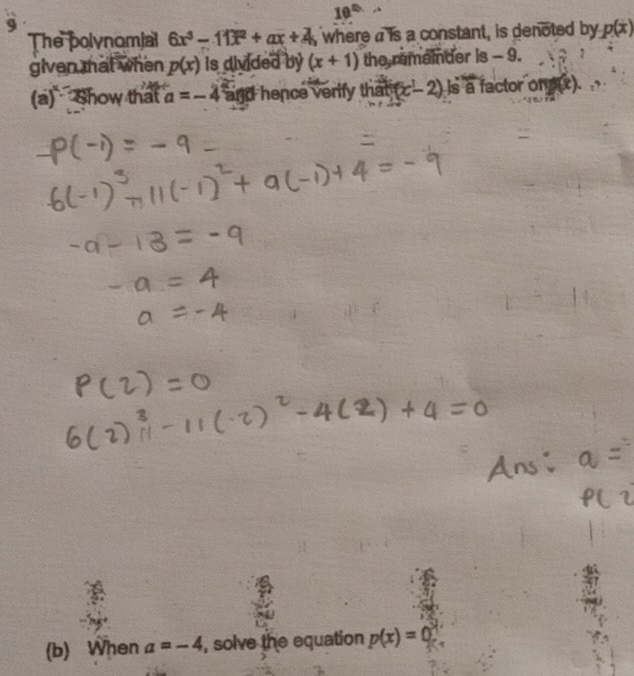 9
The polynomial 6x³ – 11x² + ax + 4, where a is a constant, is denoted by p(x)
given that when p(x) is divided by (x + 1) the remainder is – 9.
(a) Show that a = – 4 and hence verify that (x – 2) is a factor of p(x).
P(-1) = - 9
6(-1)³ - 11(-1)² + a(-1) + 4 = - 9
-a - 13 = -9
- a = 4
a = -4
P(2) = 0
6(2)³ - 11(-2)² - 4(2) + 4 = 0
Ans: a =
P(2
(b) When a = – 4, solve the equation p(x) = 0.